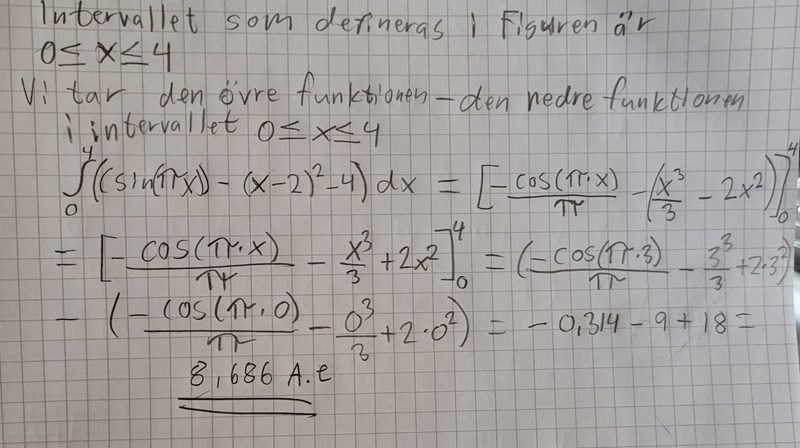 Intervallet som defineras i figuren är
0 ≤ x ≤ 4
Vi tar den övre funktionen – den nedre funktionen
i intervallet 0 ≤ x ≤ 4
∫₀⁴ ((sin(πx)) - (x-2)² - 4) dx = [-cos(π·x)/π - (x³/3 - 2x²)]₀⁴
= [-cos(π·x)/π - x³/3 + 2x²]₀⁴ = (-cos(π·3)/π - 3³/3 + 2·3²)
- (-cos(π·0)/π - 0³/3 + 2·0²) = -0,314 - 9 + 18 =
8,686 A.e